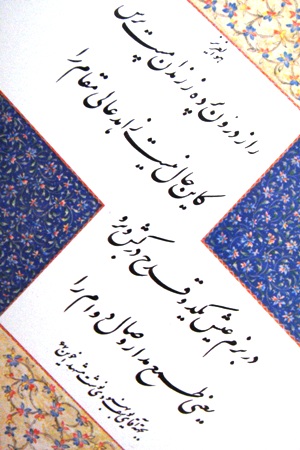 هوالعزیز
راز درون پرده ز رندان مست پرس
کاین حال نیست زاهد عالی مقام را
در بزم عیش یک دو قدح درکش و برو
یعنی طمع مدار وصال دوام را